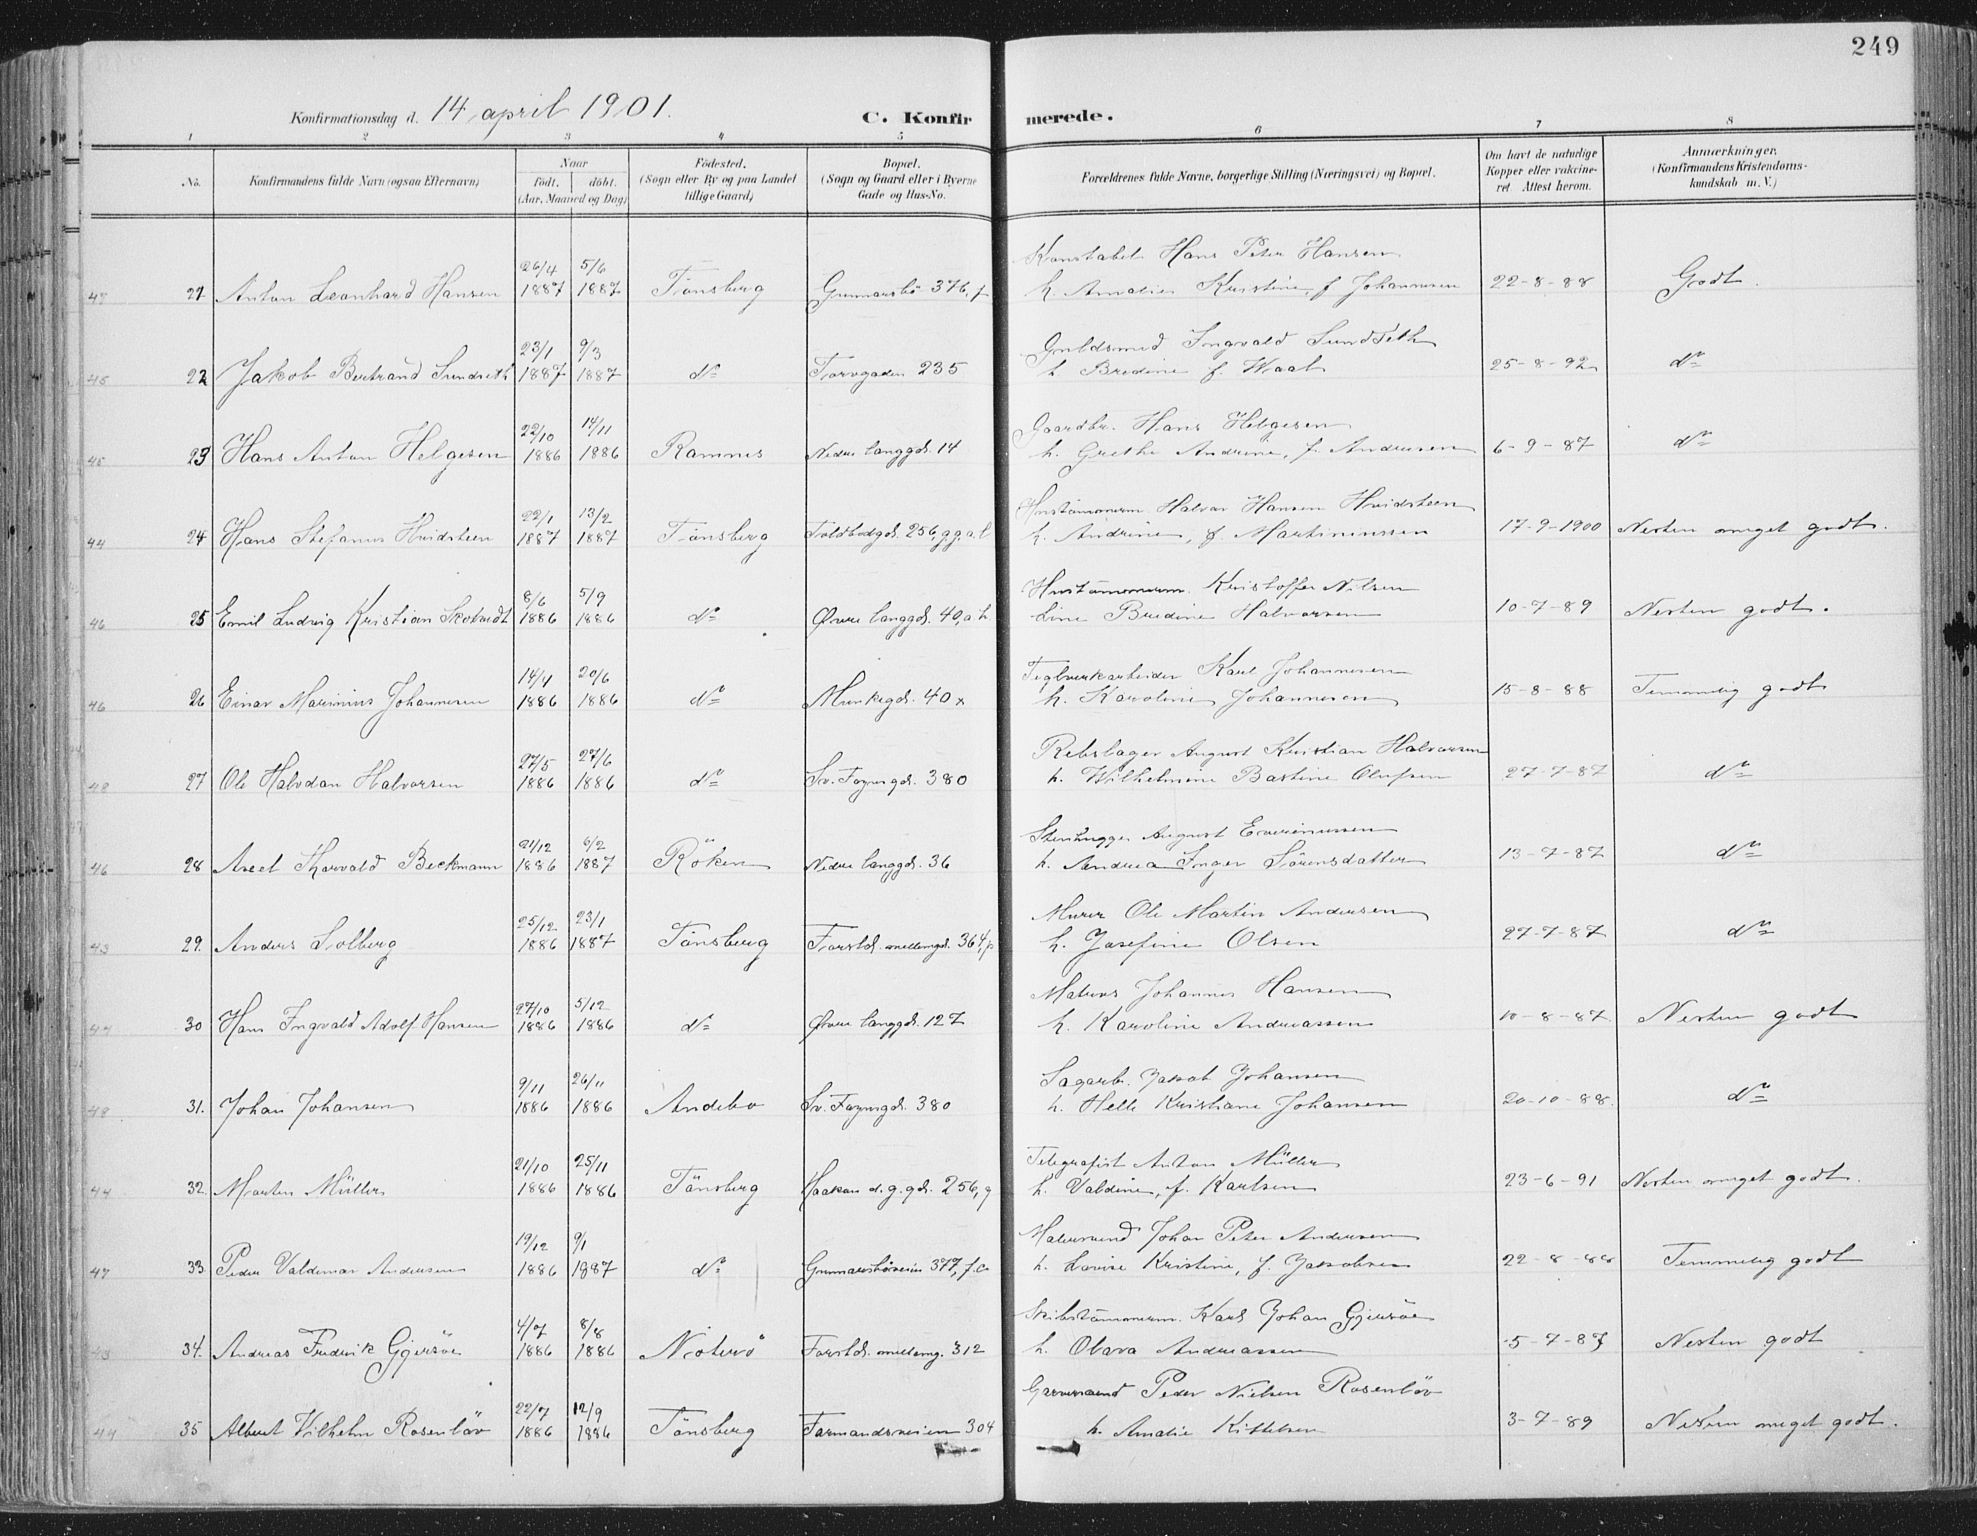 249
Konfirmationsdag d. 14 april 1901.
C. Konfirmerede.
1 2 3 4 5 6 7 8
No.
Konfirmandens fulde Navn (ogsaa Efternavn)
Naar
født. døbt.
(Aar, Maaned og Dag)
Födested.
(Sogn eller By og paa Landet
tillige Gaard)
Bopæl.
(Sogn og Gaard eller i Byerne
Gade og Hus-No.
Forældrenes fulde Navne, borgerlige Stilling (Næringsvei) og Bopæl.
Om havt de naturlige
Kopper eller vakcine-
ret. Attest herom.
Anmærkninger.
(Konfirmandens Kristendoms-
kundskab m. V.)
26/4 5/6 Konstabel Hans Peter Hansen
47 21. Anton Leonhard Hansen 1887 1887 Tönsberg Gunnarsbö 376, f h. Amalie Kristine, f Johannesen 22-8-88 Godt.
23/1 9/3 Guldsmed Ingvald Sundseth
45 22 Jakob Bertrand Sundseth 1887 1887 do Torvgaden 235 h Bredine f. Waal 25-8-92 do
22/10 14/11 Gaardbr. Hans Helgesen
45 23 Hans Anton Helgesen 1886 1886 Ramnes Nedre langgd. 14 h. Grethe Andrine, f. Andersen 6-9-87 do
22/1 13/2 Hustömmerm. Halvor Hansen Hvidsteen
44 24 Hans Stefanus Hvidsteen 1887 1887 Tönsberg Toldbodgd. 256, g.g.a.l h. Andrine, f. Martiniussen 17-9-1900 Nesten meget godt.
8/6 5/9 Hustömmerm. Kristoffer Nilsen
46 25 Emil Ludvig Kristian 1886 1886 do Øvre langgd. 40, a.h. Line Bredine Halvorsen 10-7-89 Nesten godt.
14/4 20/6 Teglverkarbeider Karl Johannesen
46 26 Einar Marinius Johannesen 1886 1886 do Munkegd. 40 x h. Karoline Johannesen 15-8-88 Temmelig godt
27/5 27/6 Rebslager August Kristian Halvorsen
48 27 Ole Halvdan Halvorsen 1886 1886 do Sv. Foyns gd. 380 h. Wilhelmine Bastine Olufsen 27-7-87 do
21/12 6/2 Stenhugger August
46 28 Axel Thorvald Beckmann 1886 1887 Röken Nedre langgd. 36 h. Andrea Inger Sörensdatter 13-7-87 do
25/12 23/1 Murer Ole Martin Andersen
43 29. Anders Solberg 1886 1887 Tönsberg Farstd. mellemgd. 364, p h. Josefine Olsen 27-7-87 do
27/10 5/12 Matros Johannes Hansen
47 30 Hans Ingvald Adolf Hansen 1886 1886 do Øvre langgd. 127 h. Karoline Andreassen 10-8-87 Nesten godt
9/11 26/11 Sagarb. Jakob Johansen
48 31. Johan Johansen 1886 1886 Andebo Sv. Foyns gd. 380 h. Helle Kristiane Johansen 20-10-88. do
21/10 25/11 Telegrafist Anton Müller
44 32. Morten Müller 1886 1886 Tönsberg Haakon d. g. gd. 256, g h. Valdine, f. Karlsen 23-6-91 Nesten meget godt.
19/12 9/1 Johan Peter Andersen
47 33. Peder Valdemar Andersen 1886 1887 do Gunnarsböveien 377, f.c h. Lovise Kristine, f. Jakobsen 22-8-88 Temmelig godt
4/7 8/8 Skibstömmerm. Karl Johan Gjersöe
43 34. Andreas Fredrik Gjersöe 1886 1886 Nöterö Farstd. mellemg. 312 h. Olava Andreassen 5-7-87 Nesten godt
22/7 12/9 Garversvend Peder Nielsen Rosenlöv
44 35 Albert Vilhelm Rosenlöv 1886 1886 Tönsberg Farmandsveien 304 h. Amalie Kittelsen 3-7-89 Nesten meget godt.